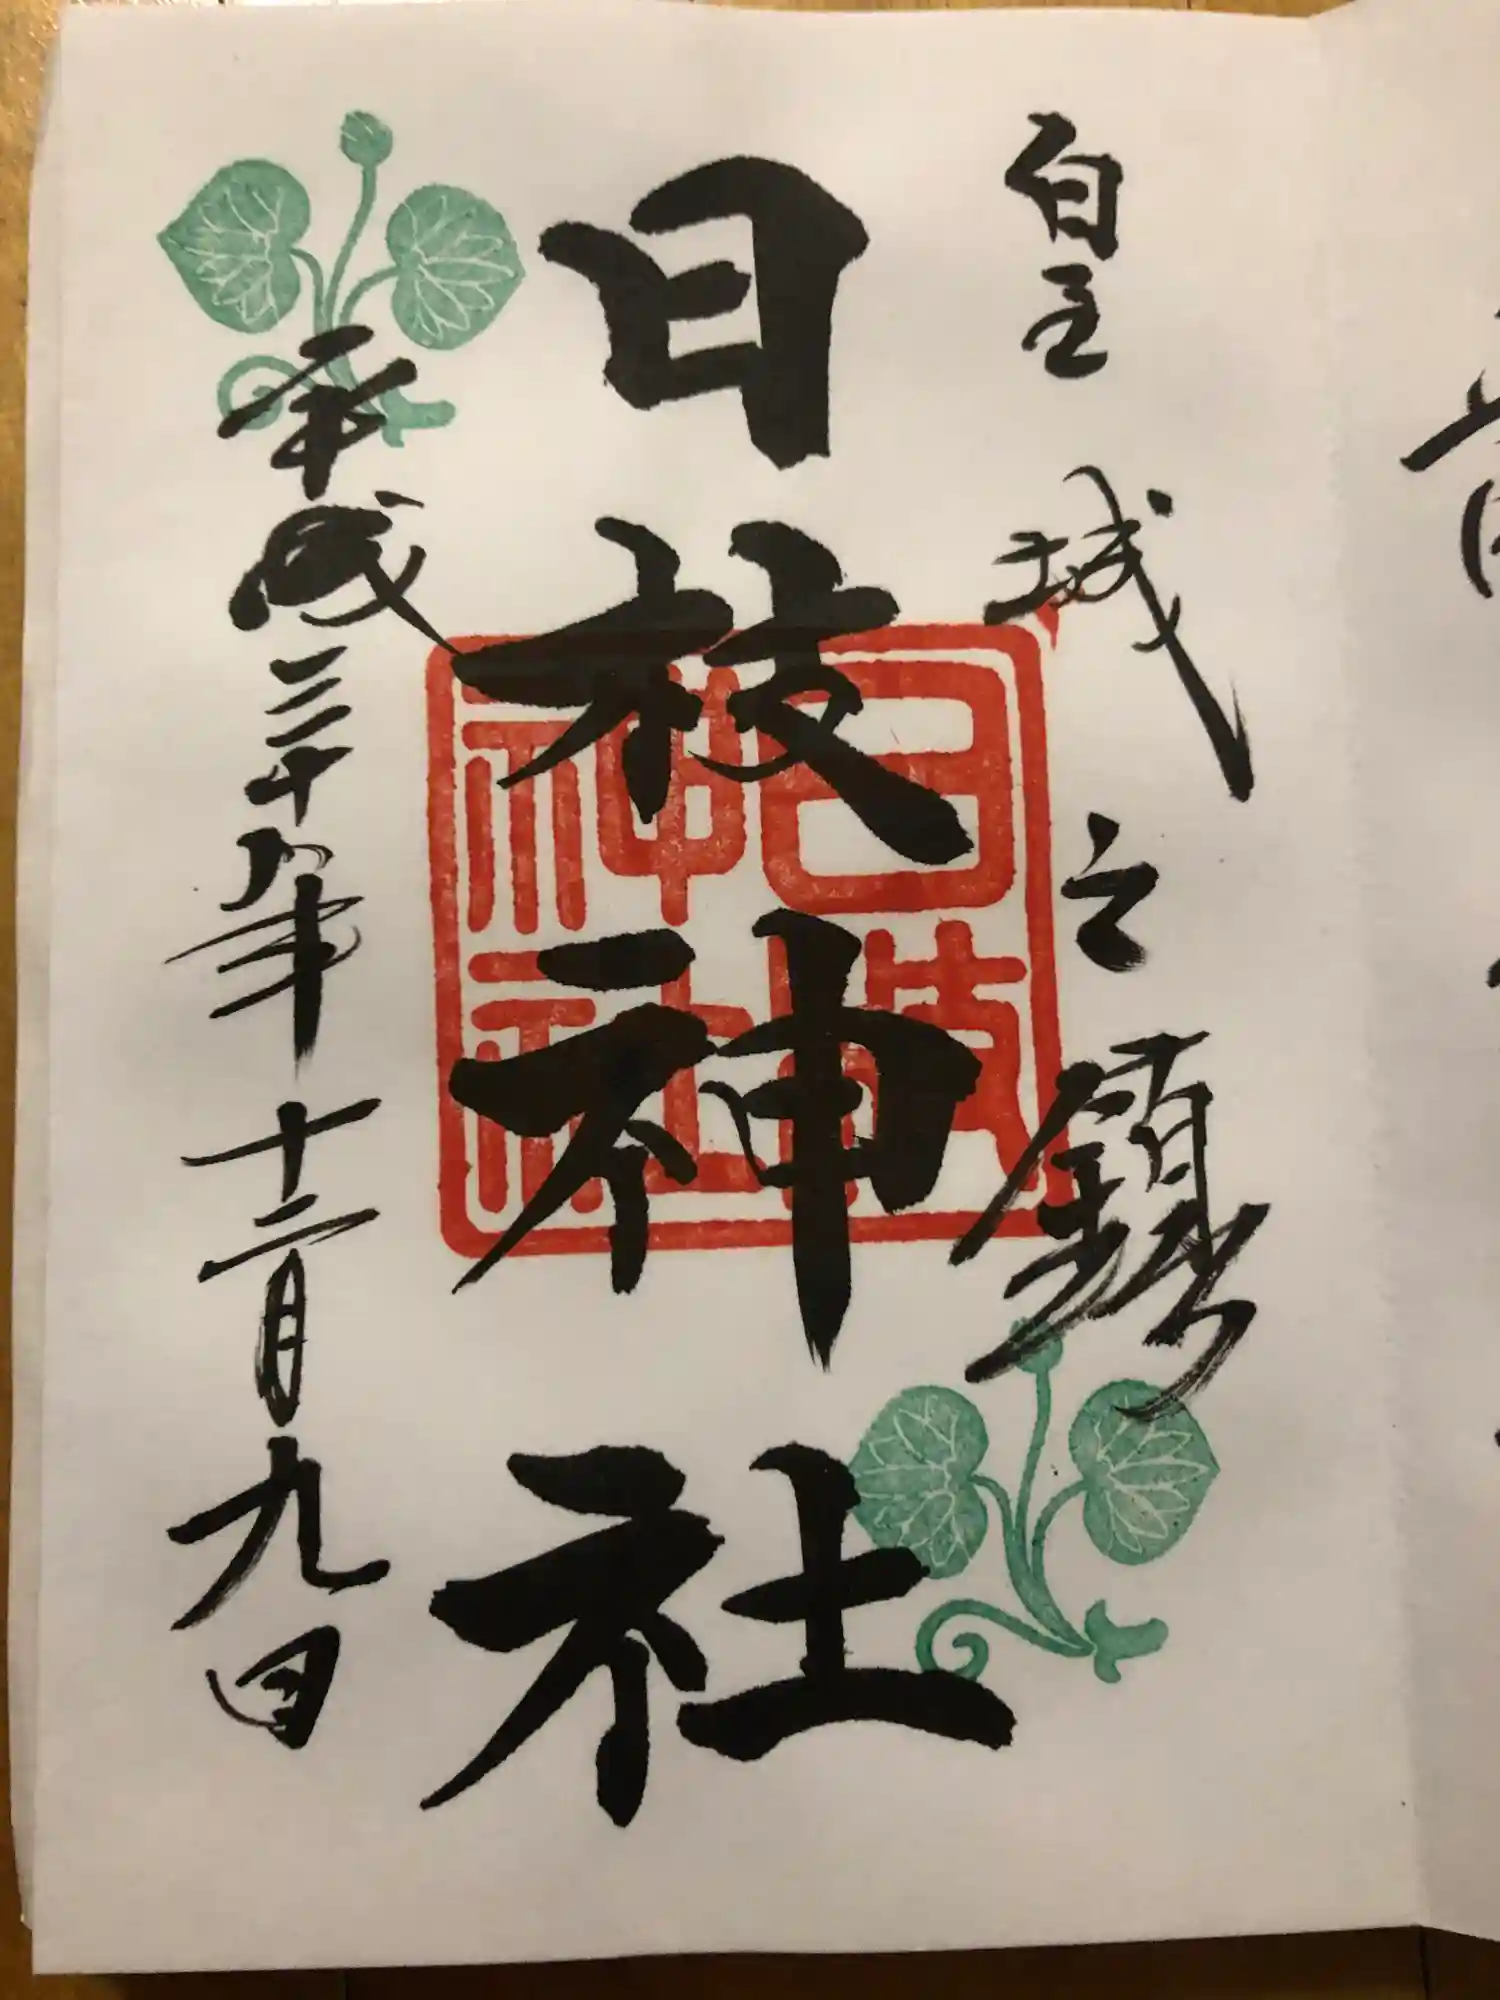 皇城之鎮
日枝神社
日枝神社
平成三十年十二月九日